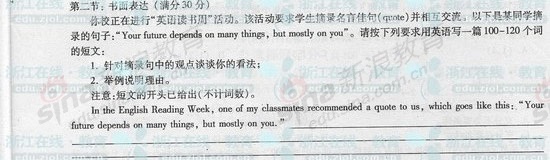 第二节：书面表达（满分30分）
你校正在进行“英语读书周”活动。该活动要求学生摘录名言佳句(quote)并相互交流。以下是某同学摘
录的句子：“Your future depends on many things, but mostly on you”。请按下列要求用英语写一篇100-120个词
的短文：
1. 针对摘录句中的观点谈谈你的看法；
2. 举例说明理由。
注意：短文的开头已给出(不计词数)。
In the English Reading Week, one of my classmates recommended a quote to us, which goes like this: “Your
future depends on many things, but mostly on you.”